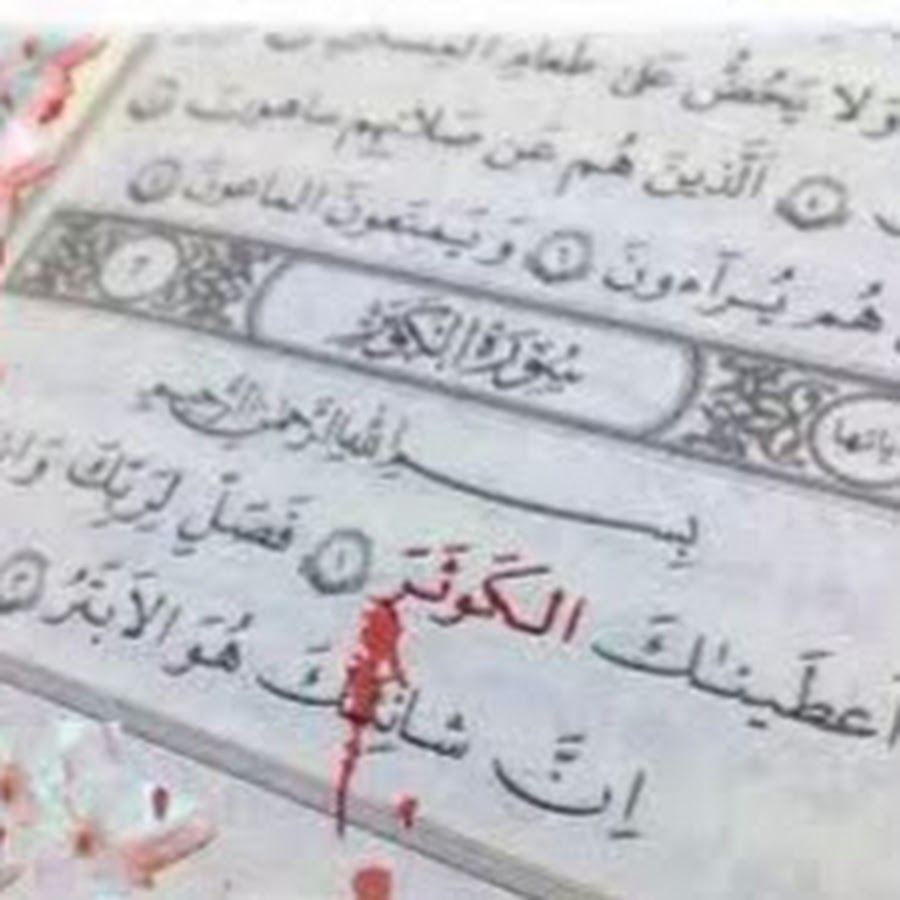 وَلا يَحُضُّ عَلىٰ طَعامِ المِسكينِ
۵ الَّذينَ هُم عَن صَلاتِهِم ساهونَ
هُم يُرآءونَ ۶ وَيَمنَعونَ الماعونَ ۷
سُورَةُ الكَوثَر
ياتها
بِسمِ اللهِ الرَّحمٰنِ الرَّحيمِ
اَعطَينٰكَ الكَوثَرَ ۱ فَصَلِّ لِرَبِّكَ وَان
اِنَّ شانِئَكَ هُوَ الاَبتَرُ ۳